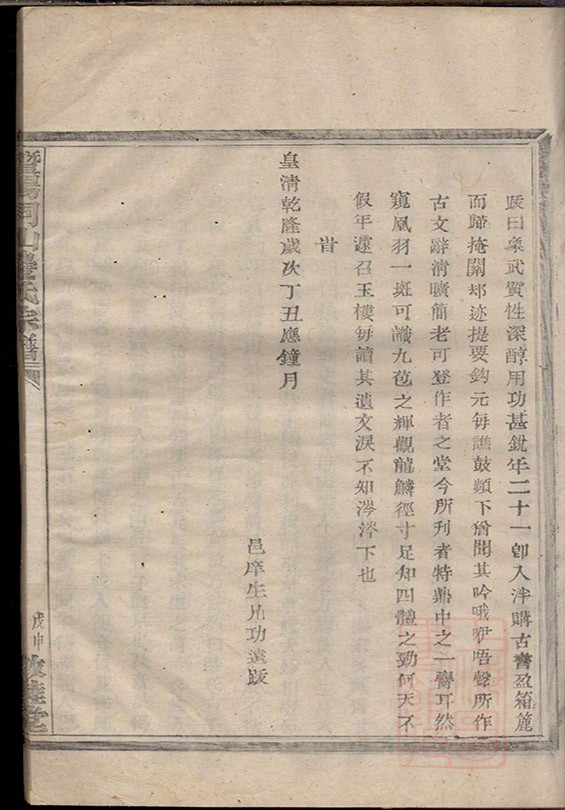 跋曰象武質性深醇用功甚銳年二十一卽入泮購古書盈箱簏
而歸掩關却迹提要鈎元每譙鼓頻下猶聞其吟哦咿唔聲所作
古文辭清曠簡老可登作者之堂今所刋者特鼎中之一臠耳然
窺鳳羽一斑可識九苞之輝觀龍鱗徑寸足知四體之勁何天不
假年遽召玉樓每讀其遺文淚不知涔涔下也
旹
皇清乾隆歲次丁丑應鐘月
邑庠生兄功遠跋
暨陽同山邊氏宗譜
戊申
敘倫堂